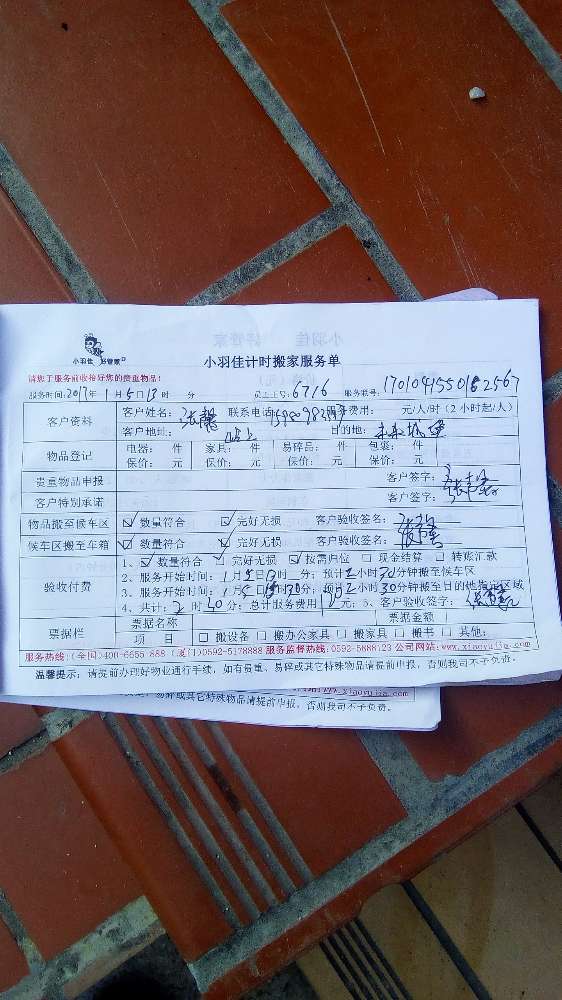 小羽佳 好管家
小羽佳计时搬家服务单
请您于服务前收拾好您的贵重物品!
服务时间:2017年1月5日13时 分 员工工号:6716 服务单号:
客户资料 客户姓名: 联系电话: 服务费用: 元/人/时(2小时起/人)
客户地址: 目的地:
物品登记 电器: 件 家具: 件 易碎品: 件 包裹: 件
保价: 元 保价: 元 保价: 元 保价: 元
贵重物品申报 客户签字:
客户特别承诺 客户签字:
物品搬至候车区 ☑数量符合 ☑完好无损 客户验收签名:
候车区搬至车箱 ☑数量符合 ☑完好无损 客户验收签名:
验收付费 1、☑数量符合 ☑完好无损 ☑按需归位 □现金结算 □转账汇款
2、服务开始时间:1月5日 时 分;预计2小时30分钟搬至候车区
3、服务开始时间:1月5日 时30分;预计2小时30分钟搬至目的地指定区域
4、共计:2时30分;总计服务费用 元;5、客户验收签字:
票据栏 票据名称 票据金额
项 目 □搬设备 □搬办公家具 □搬家具 □搬书 □其他:
服务热线:(全国)400-6655-888 (厦门)0592-5178888 服务监督热线:0592-5688123 公司网站:www.xiaoyujia.com
温馨提示:请提前办理好物业通行手续,如有贵重、易碎或其它特殊物品请提前申报,否则我司不予负责。
易碎或其它特殊物品请提前申报,否则我司不予负责。